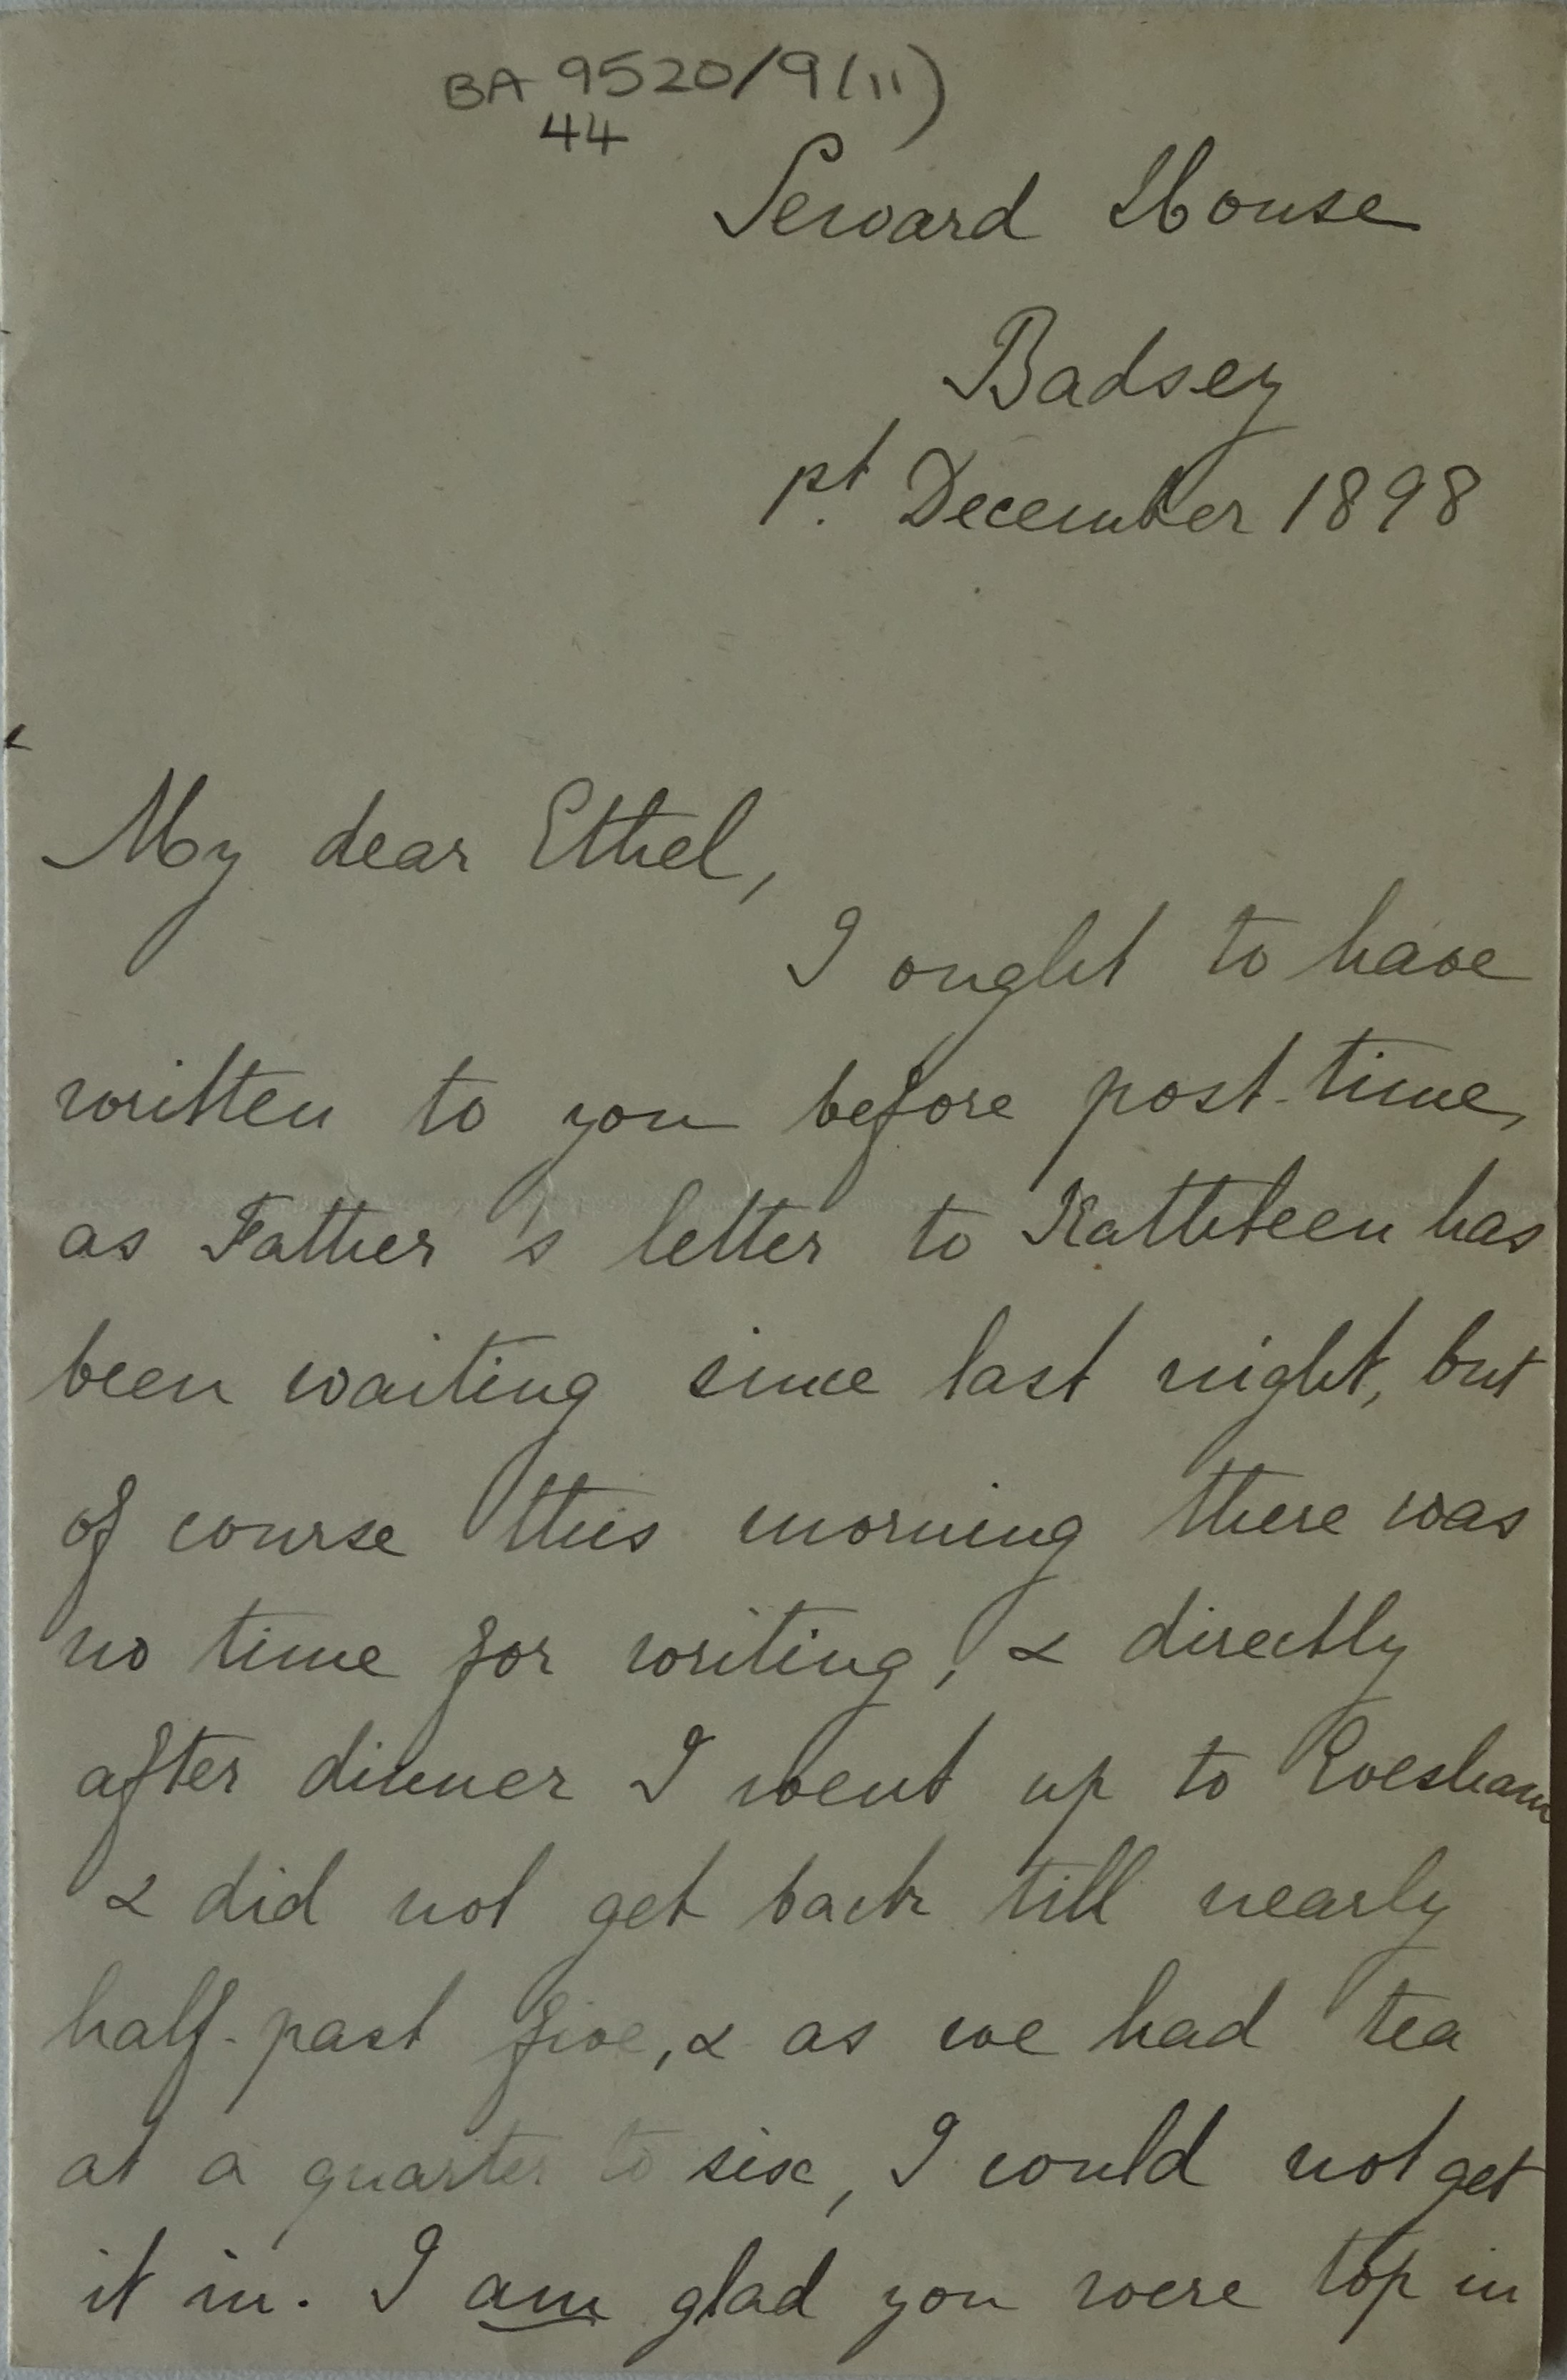 BA 9520/9(11)
44
Seward House
Badsey
1st. December 1898
My dear Ethel,
I ought to have
written to you before post-time,
as Father's letter to Kathleen has
been waiting since last night, but
of course this morning there was
no time for writing, & directly
after dinner I went up to Evesham
& did not get back till nearly
half-past five, & as we had tea
at a quarter to six, I could not get
it in. I am glad you were top in